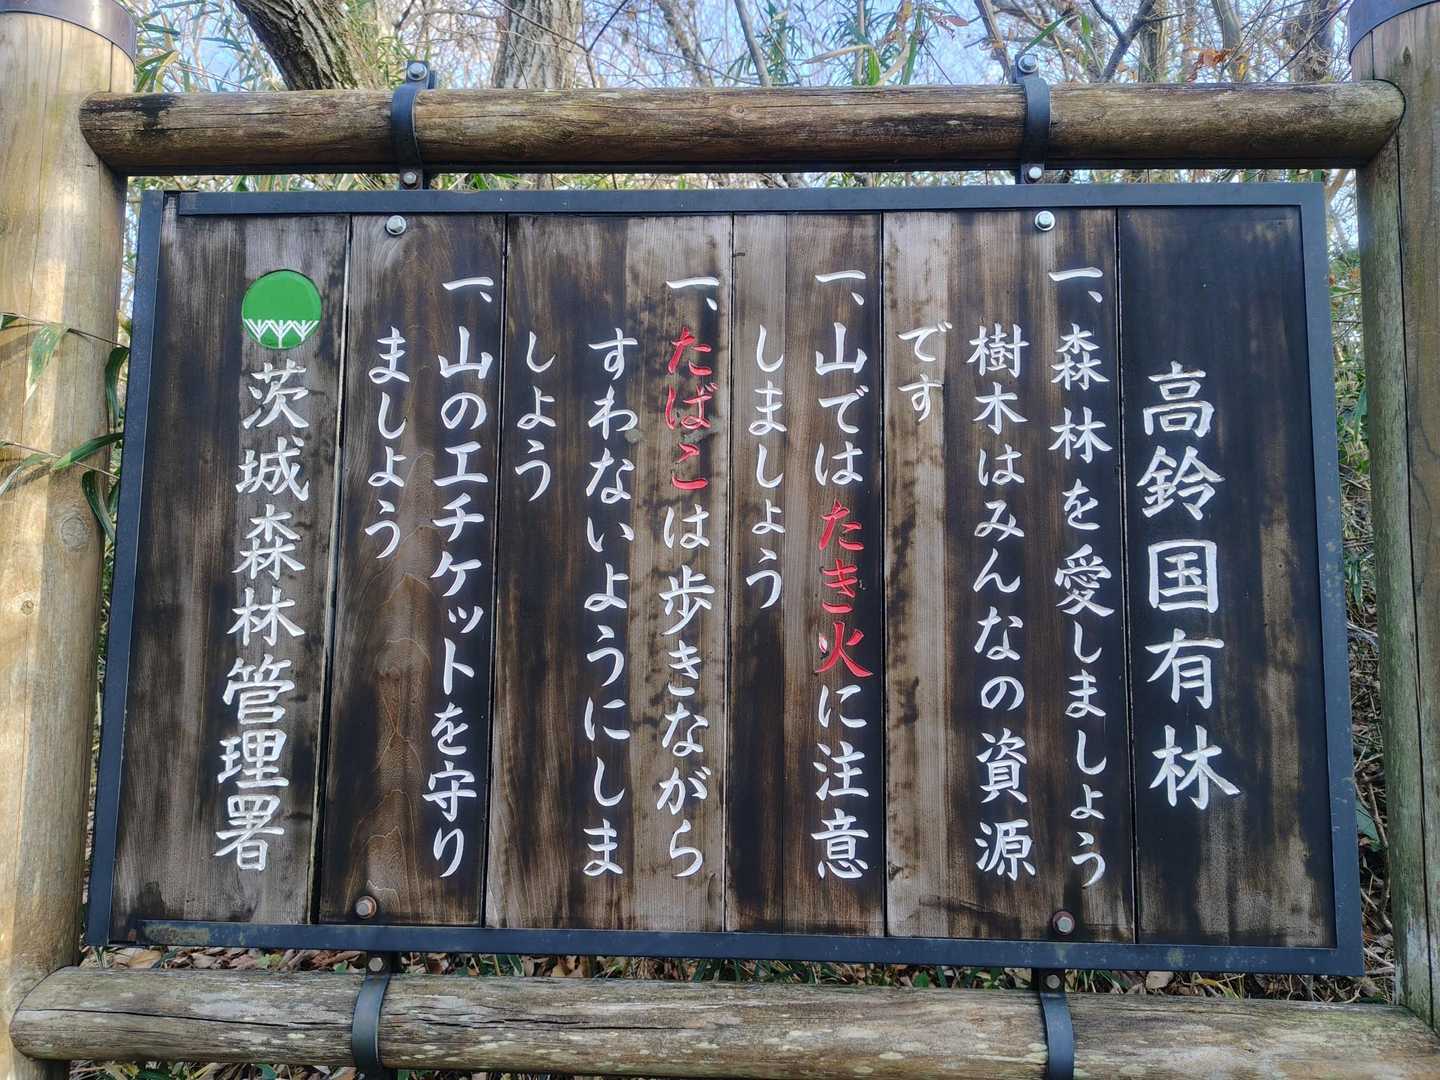 高鈴国有林
一、森林を愛しましょう
樹木はみんなの資源
です
一、山ではたき火に注意
しましょう
一、たばこは歩きながら
すわないようにしま
しょう
一、山のエチケットを守り
ましょう
茨城森林管理署